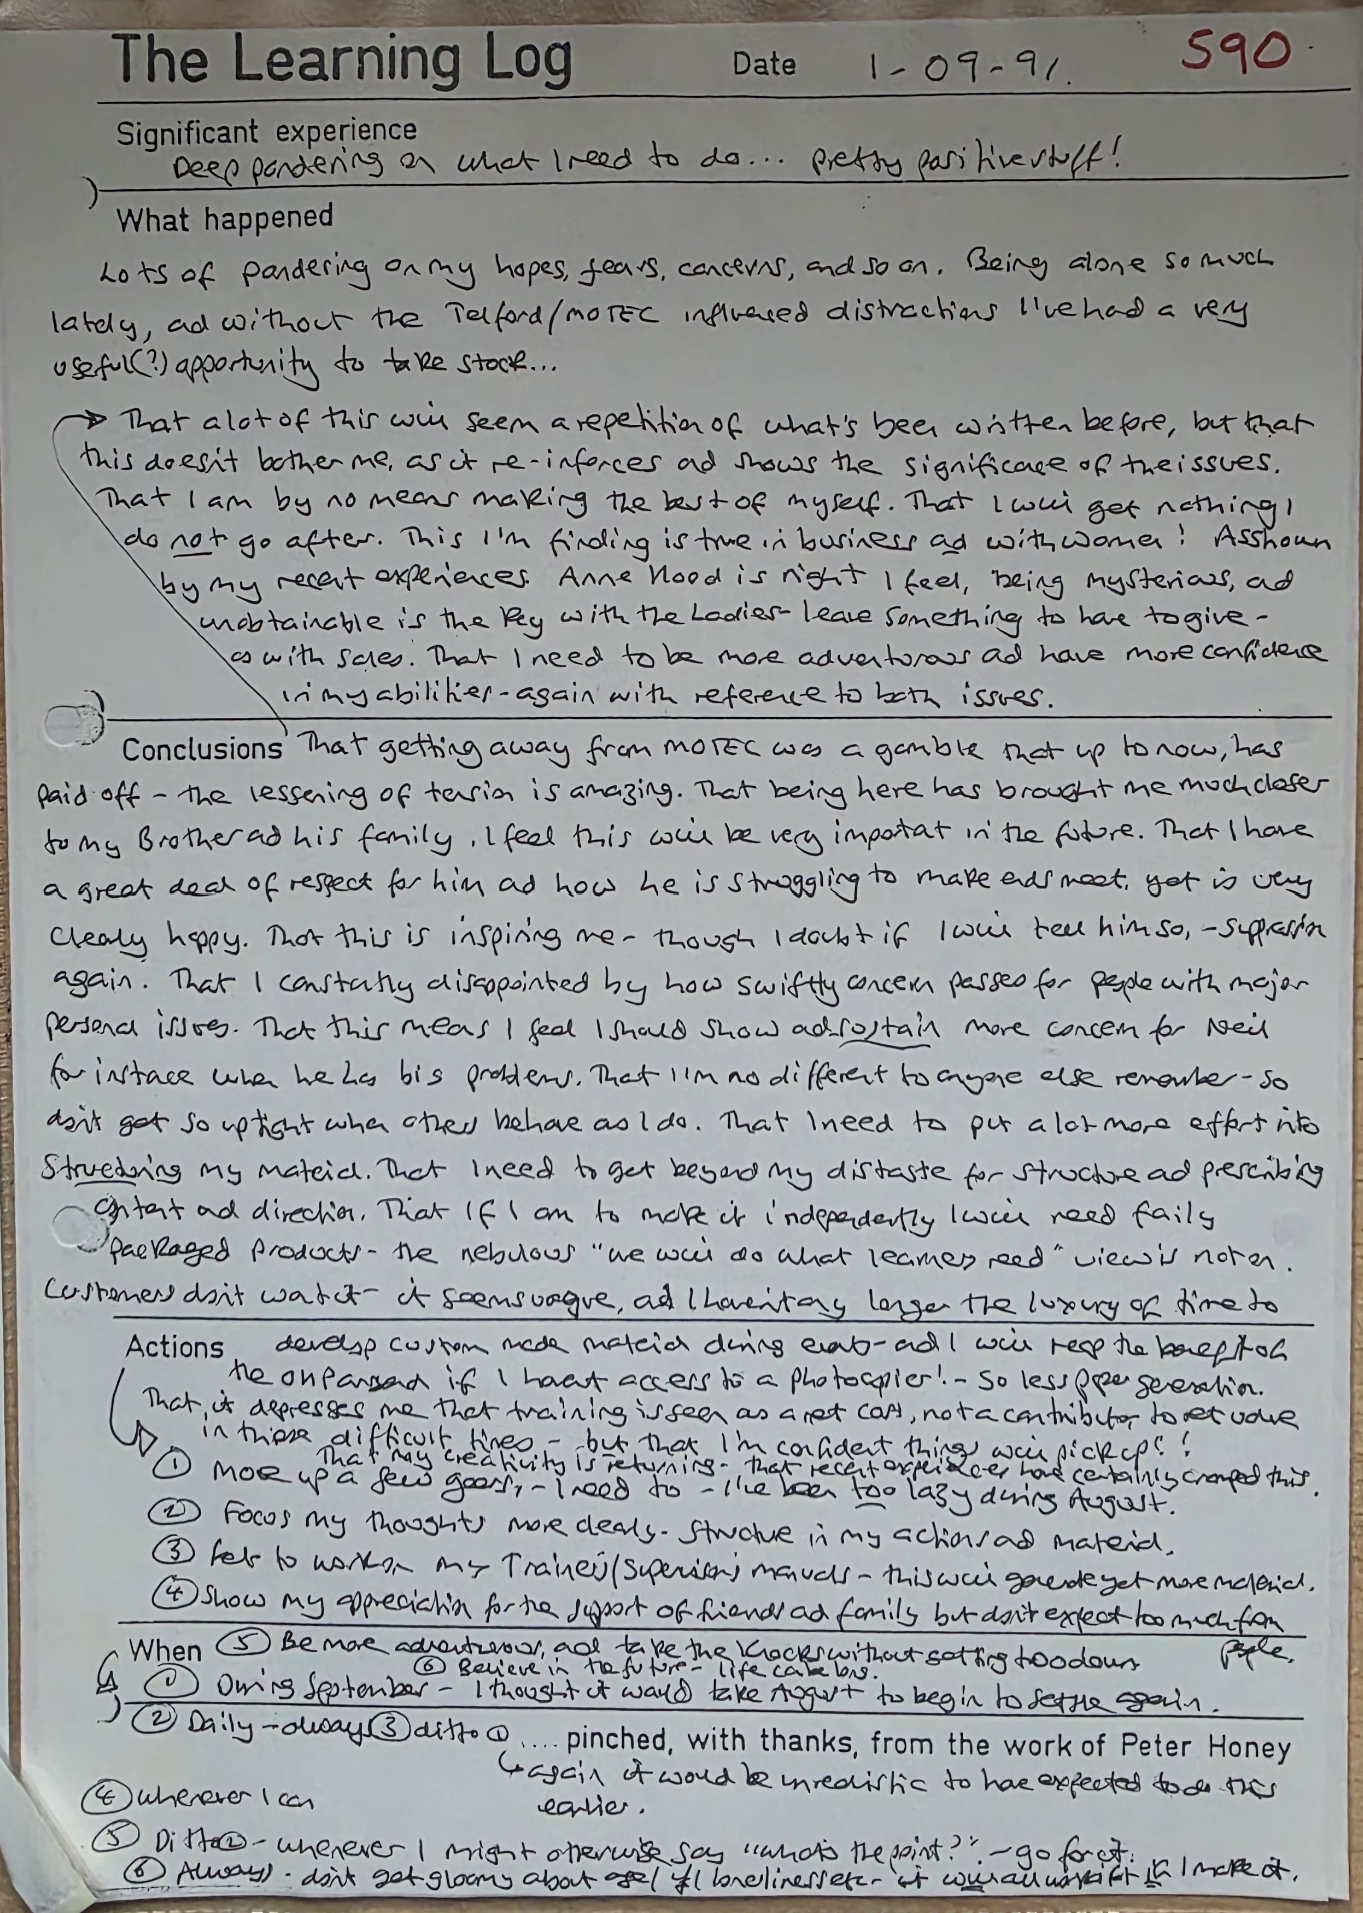 The Learning Log Date 1-09-91. 590
Significant experience
Deep pondering on what I need to do... pretty positive stuff!
What happened
Lots of pondering on my hopes, fears, concerns, and so on. Being alone so much
lately, ad without the Telford/MOTEC influenced distractions I've had a very
useful(?) opportunity to take stock...
→ That a lot of this will seem a repetition of what's been written before, but that
this doesn't bother me, as it re-inforces ad shows the significance of the issues.
That I am by no means making the best of myself. That I will get nothing I
do not go after. This I'm finding is true in business ad with women! As shown
by my recent experiences. Anne Hood is right I feel, being mysterious, ad
unobtainable is the key with the Ladies - leave something to have to give -
as with sales. That I need to be more adventurous ad have more confidence
in my abilities - again with reference to both issues.
Conclusions That getting away from MOTEC was a gamble that up to now, has
paid off - the lessening of tension is amazing. That being here has brought me much closer
to my Brother ad his family. I feel this will be very important in the future. That I have
a great deal of respect for him ad how he is struggling to make ends meet, yet is very
clearly happy. That this is inspiring me - though I doubt if I will tell him so, - suppression
again. That I constantly disappointed by how swiftly concern passes for people with major
personal issues. That this means I feel I should show ad sustain more concern for Neil
for instance when he has big problems. That I'm no different to anyone else remember - so
don't get so uptight when others behave as I do. That I need to put a lot more effort into
structuring my material. That I need to get beyond my distaste for structure ad prescribing
content ad direction. That if I am to make it independently I will need fairly
packaged products - the nebulous "we will do what learners need" view is not on.
Customers don't want it - it seems vague, ad I haven't any longer the luxury of time to
Actions develop custom made material during events - ad I will reap the benefit of
the on if I haven't access to a photocopier! - So less paper generation.
That, it depresses me that training is seen as a net cost, not a contributor to net value
in these difficult times - but that I'm confident things will pick up!!
That my creativity is returning - that recent experiences have certainly cramped this.
① Mop up a few goers, - I need to - I've been too lazy during August.
② Focus my thoughts more clearly - structure in my actions ad material.
③ Get to work on my Trainers/Supervisors manuals - this will generate yet more material.
④ Show my appreciation for the support of friends ad family but don't expect too much from
people.
When ⑤ Be more adventurous, ad take the knocks without getting too down
⑥ Believe in the future - life can be long.
① During September - I thought it would take August to begin to settle again.
② Daily - always ③ ditto ① .... pinched, with thanks, from the work of Peter Honey
↳ again it would be unrealistic to have expected to do this
earlier.
④ Whenever I can
⑤ Ditto ② - whenever I might otherwise say "what's the point?" - go for it.
⑥ Always - don't get gloomy about age/ loneliness etc - it will all work if I make it.